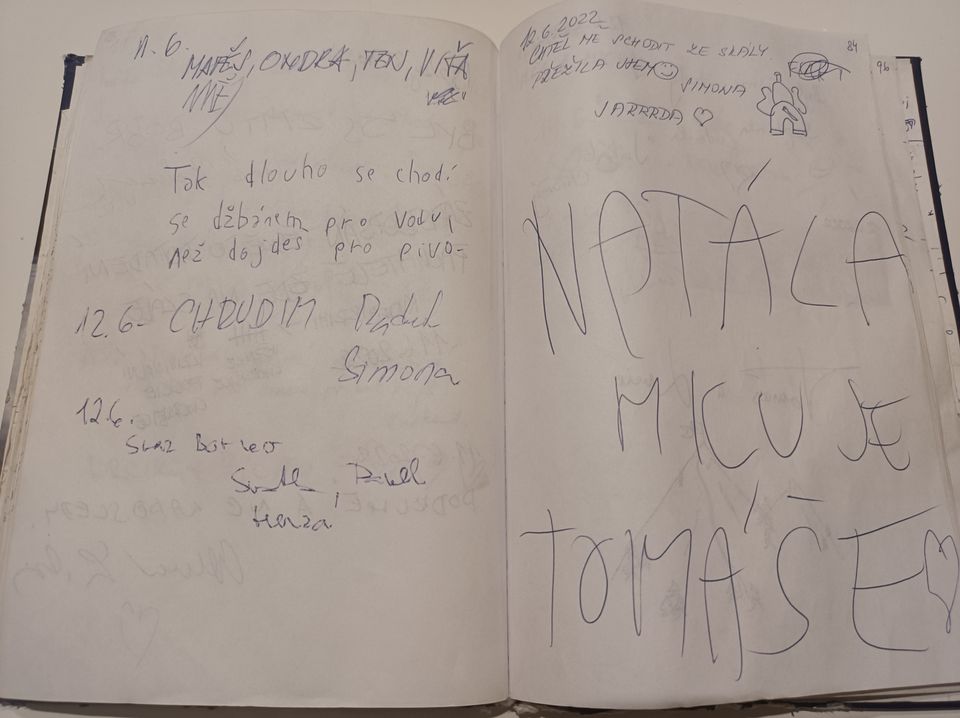 11. 6.
MATĚJ, ONDRA, TON, VÍŤA
Tak dlouho se chodí
se džbánem pro vodu,
než dojdeš pro pivo-
12.6- CHRUDIM Radek
Simona
12.6.
Pavel
Honza
12.6.2022
84
CHTĚL MĚ SCHODIT ZE SKÁLY.
PŘEŽILA JSEM☺
SIMONA
96
JARRRDA ♡
NATÁLA
MILUJE
TOMÁŠE♡